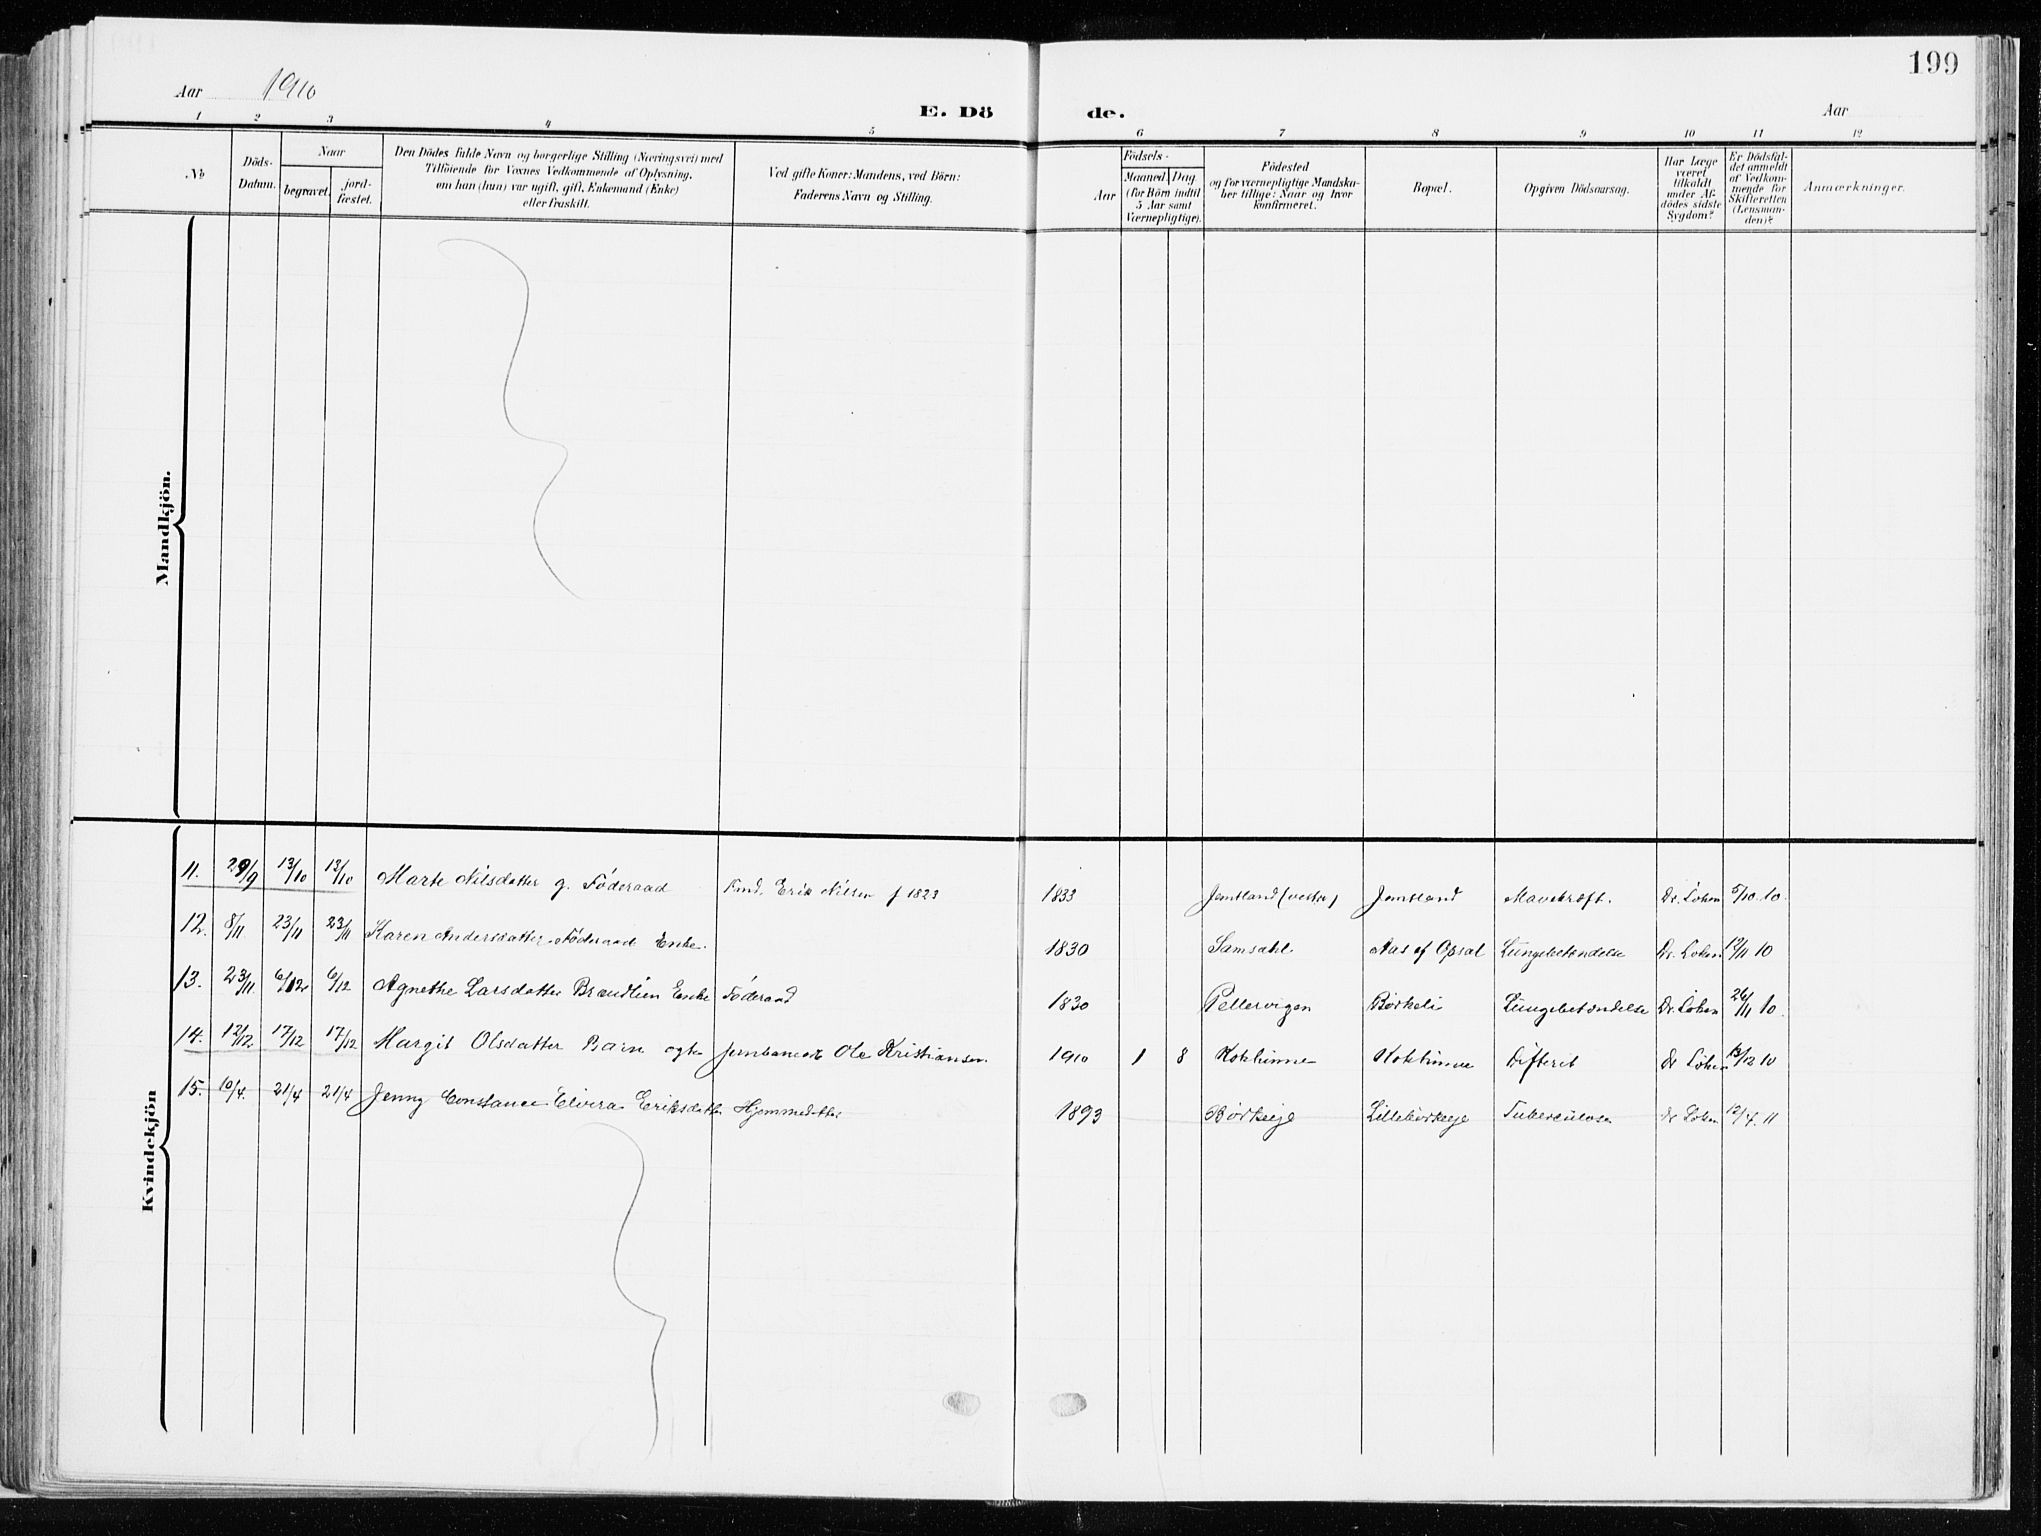 199
Aar 1910
E. Dö de.
Aar
1 2 3 4 5 6 7 8 9 10 11 12
No
Döds-Datum.
Naar
begravet.
jord-fæstet.
Den Dödes fulde Navn og borgerlige Stilling (Næringsvei) med
Tilföiende for Voxnes Vedkommende af Oplysning,
om han (hun) var ugift, gift, Enkemand (Enke)
eller fraskilt.
Ved gifte Koner: Mandens, ved Börn:
Faderens Navn og Stilling.
Födsels-
Aar
Maaned Dag
(for Börn indtil
5 Aar samt
Værnepligtige).
Födested
og for værnepligtige Mandska-
ber tillige: Naar og hvor
konfirmeret.
Bopæl.
Opgiven Dödsaarsag.
Har Læge
været
tilkaldt
under Af-
dödes sidste
Sygdom?
Er Dödsfal-
det anmeldt
af Vedkom-
mende for
Skifteretten
(Lensman-
den)?
Anmærkninger.
Mandkjön.
Kvindekjön
11. 29/9 13/10 13/10 Marte Nilsdatter g. Föderaad Fmd. Erik Nilsen f 1823 1833 Jemtland (vestre) Jemtland Mavekræft. Dr. Loken 5/10 10.
12. 8/11 23/11 23/11 Karen Andersdatter Föderaad Enke. 1830 Samsahl Aas af Opsal Lungebetændelse Dr. Loken 12/11 10
13. 23/11. 6/12 6/12 Agnethe Larsdatter Brændlien Enke Föderaad 1830 Pellervigen Börkeli Lungebetændelse Dr. Loken 26/11 10.
14. 12/12 17/12 17/12 Margit Olsdatter Barn ægte Jernbanearb Ole Kristiansen 1910 1 8 Koklinne Koklinne Difterit Dr Loken 13/12 10
15. 10/4. 21/4 21/4 Jenny Constance Elvira Eriksdatter Hjemmedatter 1893 Börkeeje Lillebörkeeje Tuberculose dr Loken 12/4. 11